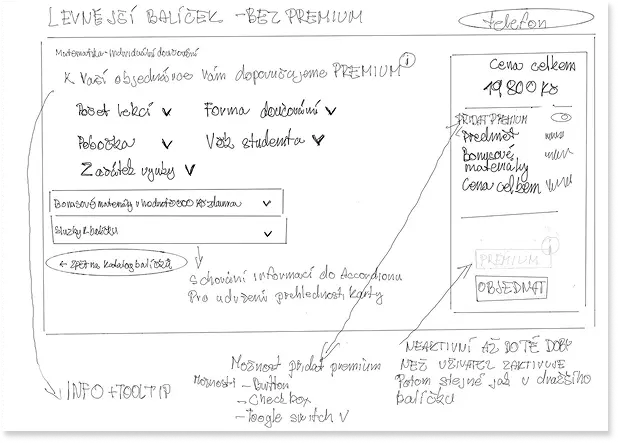 LEVNĚJŠÍ BALÍČEK - BEZ PREMIUM
telefon
Matematika - Individuální doučování
K Vaší objednávce Vám doporučujeme PREMIUM i
Cena celkem
19,800 Kč
Počet lekcí
Forma doučování
Pobočka
Věk studenta
Začátek výuky
PŘIDAT PREMIUM
Předmět
Bonusové
materiály
Cena celkem
Bonusové materiály v hodnotě Kč zdarma
Služby k balíčku
← Zpět na katalog balíčků
i
PREMIUM
OBJEDNAT
Schování informací do Accordionu
Pro udržení přehlednosti karty
INFO + TOOLTIP
Možnost přidat premium
Možnosti - Button
- Checkbox
- Toogle switch V
NEAKTIVNÍ AŽ DO TÉ DOBY
NEŽ UŽIVATEL ZAKTIVUJE
Potom stejné jak u dražšího
balíčku